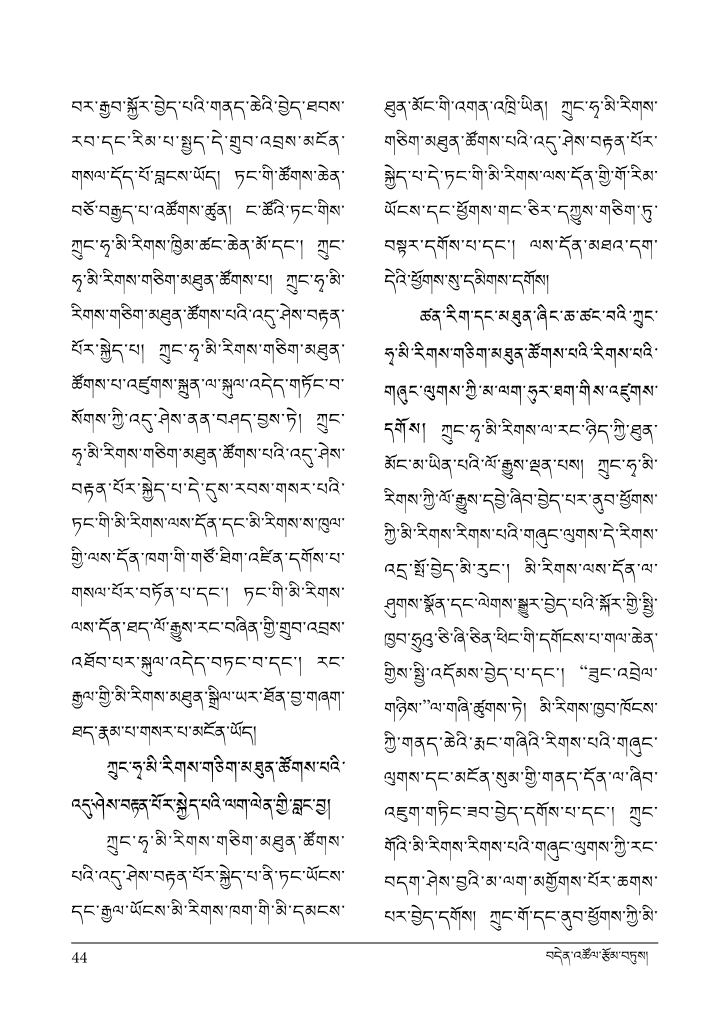 བར་རྒྱབ་སྐྱོར་བྱེད་པའི་གནད་ཆེའི་བྱེད་ཐབས་
རབ་དང་རིམ་པ་སྤྱད་དེ་གྲུབ་འབྲས་མངོན་
གསལ་དོད་པོ་བླངས་ཡོད། ཏང་གི་ཚོགས་ཆེན་
བཅོ་བརྒྱད་པ་འཚོགས་ཚུན། ང་ཚོའི་ཏང་གིས་
ཀྲུང་ཧྭ་མི་རིགས་ཁྱིམ་ཚང་ཆེན་མོ་དང་། ཀྲུང་
ཧྭ་མི་རིགས་གཅིག་མཐུན་ཚོགས་པ། ཀྲུང་ཧྭ་མི་
རིགས་གཅིག་མཐུན་ཚོགས་པའི་འདུ་ཤེས་བརྟན་
པོར་སྐྱེད་པ། ཀྲུང་ཧྭ་མི་རིགས་གཅིག་མཐུན་
ཚོགས་པ་འཛུགས་སྐྲུན་ལ་སྐུལ་འདེད་གཏོང་བ་
སོགས་ཀྱི་འདུ་ཤེས་ནན་བཤད་བྱས་ཏེ། ཀྲུང་
ཧྭ་མི་རིགས་གཅིག་མཐུན་ཚོགས་པའི་འདུ་ཤེས་
བརྟན་པོར་སྐྱེད་པ་དེ་དུས་རབས་གསར་པའི་
ཏང་གི་མི་རིགས་ལས་དོན་དང་མི་རིགས་ས་ཁུལ་
གྱི་ལས་དོན་ཁག་གི་གཙོ་ཐིག་འཛིན་དགོས་པ་
གསལ་པོར་བཏོན་པ་དང་། ཏང་གི་མི་རིགས་
ལས་དོན་ཐད་ལོ་རྒྱུས་རང་བཞིན་གྱི་གྲུབ་འབྲས་
འཐོབ་པར་སྐུལ་འདེད་བཏང་བ་དང་། རང་
རྒྱལ་གྱི་མི་རིགས་མཐུན་སྒྲིལ་ཡར་ཐོན་བྱ་གཞག་
ཐད་རྣམ་པ་གསར་པ་མངོན་ཡོད།
ཀྲུང་ཧྭ་མི་རིགས་གཅིག་མཐུན་ཚོགས་པའི་
འདུ་ཤེས་བརྟན་པོར་སྐྱེད་པའི་ལག་ལེན་གྱི་བླང་བྱ།
ཀྲུང་ཧྭ་མི་རིགས་གཅིག་མཐུན་ཚོགས་
པའི་འདུ་ཤེས་བརྟན་པོར་སྐྱེད་པ་ནི་ཏང་ཡོངས་
དང་རྒྱལ་ཡོངས་མི་རིགས་ཁག་གི་མི་དམངས་
ཐུན་མོང་གི་འགན་འཁྲི་ཡིན། ཀྲུང་ཧྭ་མི་རིགས་
གཅིག་མཐུན་ཚོགས་པའི་འདུ་ཤེས་བརྟན་པོར་
སྐྱེད་པ་དེ་ཏང་གི་མི་རིགས་ལས་དོན་གྱི་གོ་རིམ་
ཡོངས་དང་ཕྱོགས་གང་ཅིར་དཀྱུས་གཅིག་ཏུ་
བསྟར་དགོས་པ་དང་། ལས་དོན་མཐའ་དག་
དེའི་ཕྱོགས་སུ་དམིགས་དགོས།
ཚན་རིག་དང་མཐུན་ཞིང་ཆ་ཚང་བའི་ཀྲུང་
ཧྭ་མི་རིགས་གཅིག་མཐུན་ཚོགས་པའི་རིགས་པའི་
གཞུང་ལུགས་ཀྱི་མ་ལག་ཧུར་ཐག་གིས་འཛུགས་
དགོས། ཀྲུང་ཧྭ་མི་རིགས་ལ་རང་ཉིད་ཀྱི་ཐུན་
མོང་མ་ཡིན་པའི་ལོ་རྒྱུས་ལྡན་པས། ཀྲུང་ཧྭ་མི་
རིགས་ཀྱི་ལོ་རྒྱུས་དབྱེ་ཞིབ་བྱེད་པར་ནུབ་ཕྱོགས་
ཀྱི་མི་རིགས་རིགས་པའི་གཞུང་ལུགས་དེ་རིགས་
འདྲ་སྤོ་བྱེད་མི་རུང་། མི་རིགས་ལས་དོན་ལ་
ཤུགས་སྣོན་དང་ལེགས་སྒྱུར་བྱེད་པའི་སྐོར་གྱི་སྤྱི་
ཁྱབ་ཧྲུའུ་ཅི་ཞི་ཅིན་ཕིང་གི་དགོངས་པ་གལ་ཆེན་
གྱིས་སྤྱི་འདོམས་བྱེད་པ་དང་། “ཟུང་འབྲེལ་
གཉིས་”ལ་གཞི་ཚུགས་ཏེ། མི་རིགས་ཁྱབ་ཁོངས་
ཀྱི་གནད་ཆེའི་རྨང་གཞིའི་རིགས་པའི་གཞུང་
ལུགས་དང་མངོན་སུམ་གྱི་གནད་དོན་ལ་ཞིབ་
འཇུག་གཏིང་ཟབ་བྱེད་དགོས་པ་དང་། ཀྲུང་
གོའི་མི་རིགས་རིགས་པའི་གཞུང་ལུགས་ཀྱི་རང་
བདག་ཤེས་བྱའི་མ་ལག་མགྱོགས་པོར་ཆགས་
པར་བྱེད་དགོས། ཀྲུང་གོ་དང་ནུབ་ཕྱོགས་ཀྱི་མི་
44
བདེན་འཚོལ་རྩོམ་བཏུས།